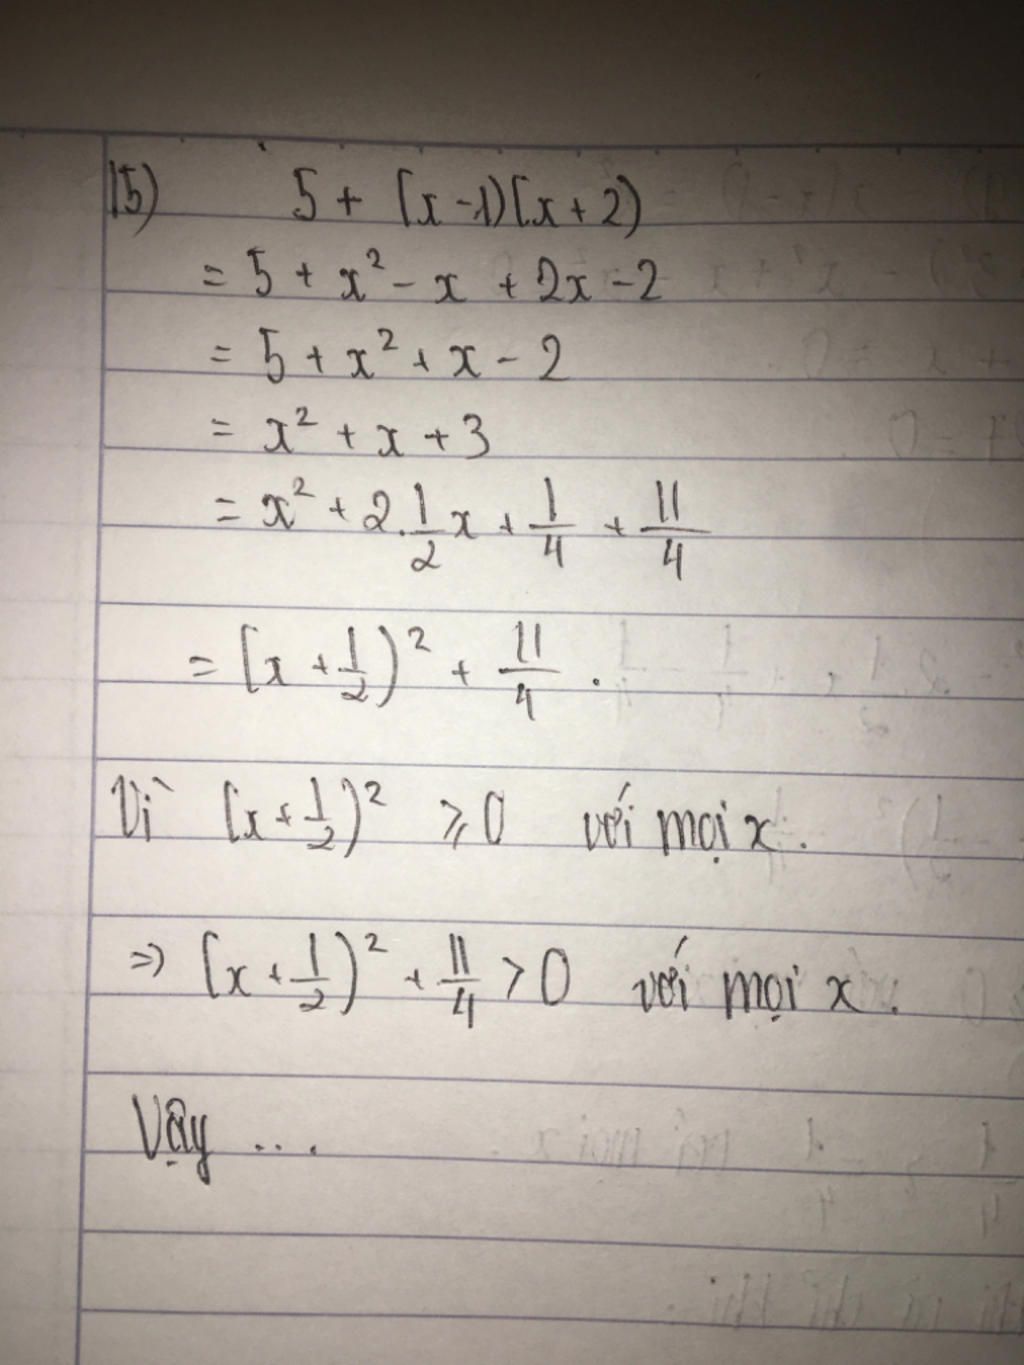 15) 5 + (x - 1)(x + 2)
= 5 + x² - x + 2x - 2
= 5 + x² + x - 2
= x² + x + 3
= x² + 2.1/2x + 1/4 + 11/4
= (x + 1/2)² + 11/4 .
Vì (x + 1/2)² ⩾ 0 với mọi x .
=> (x + 1/2)² + 11/4 > 0 với mọi x .
Vậy ...